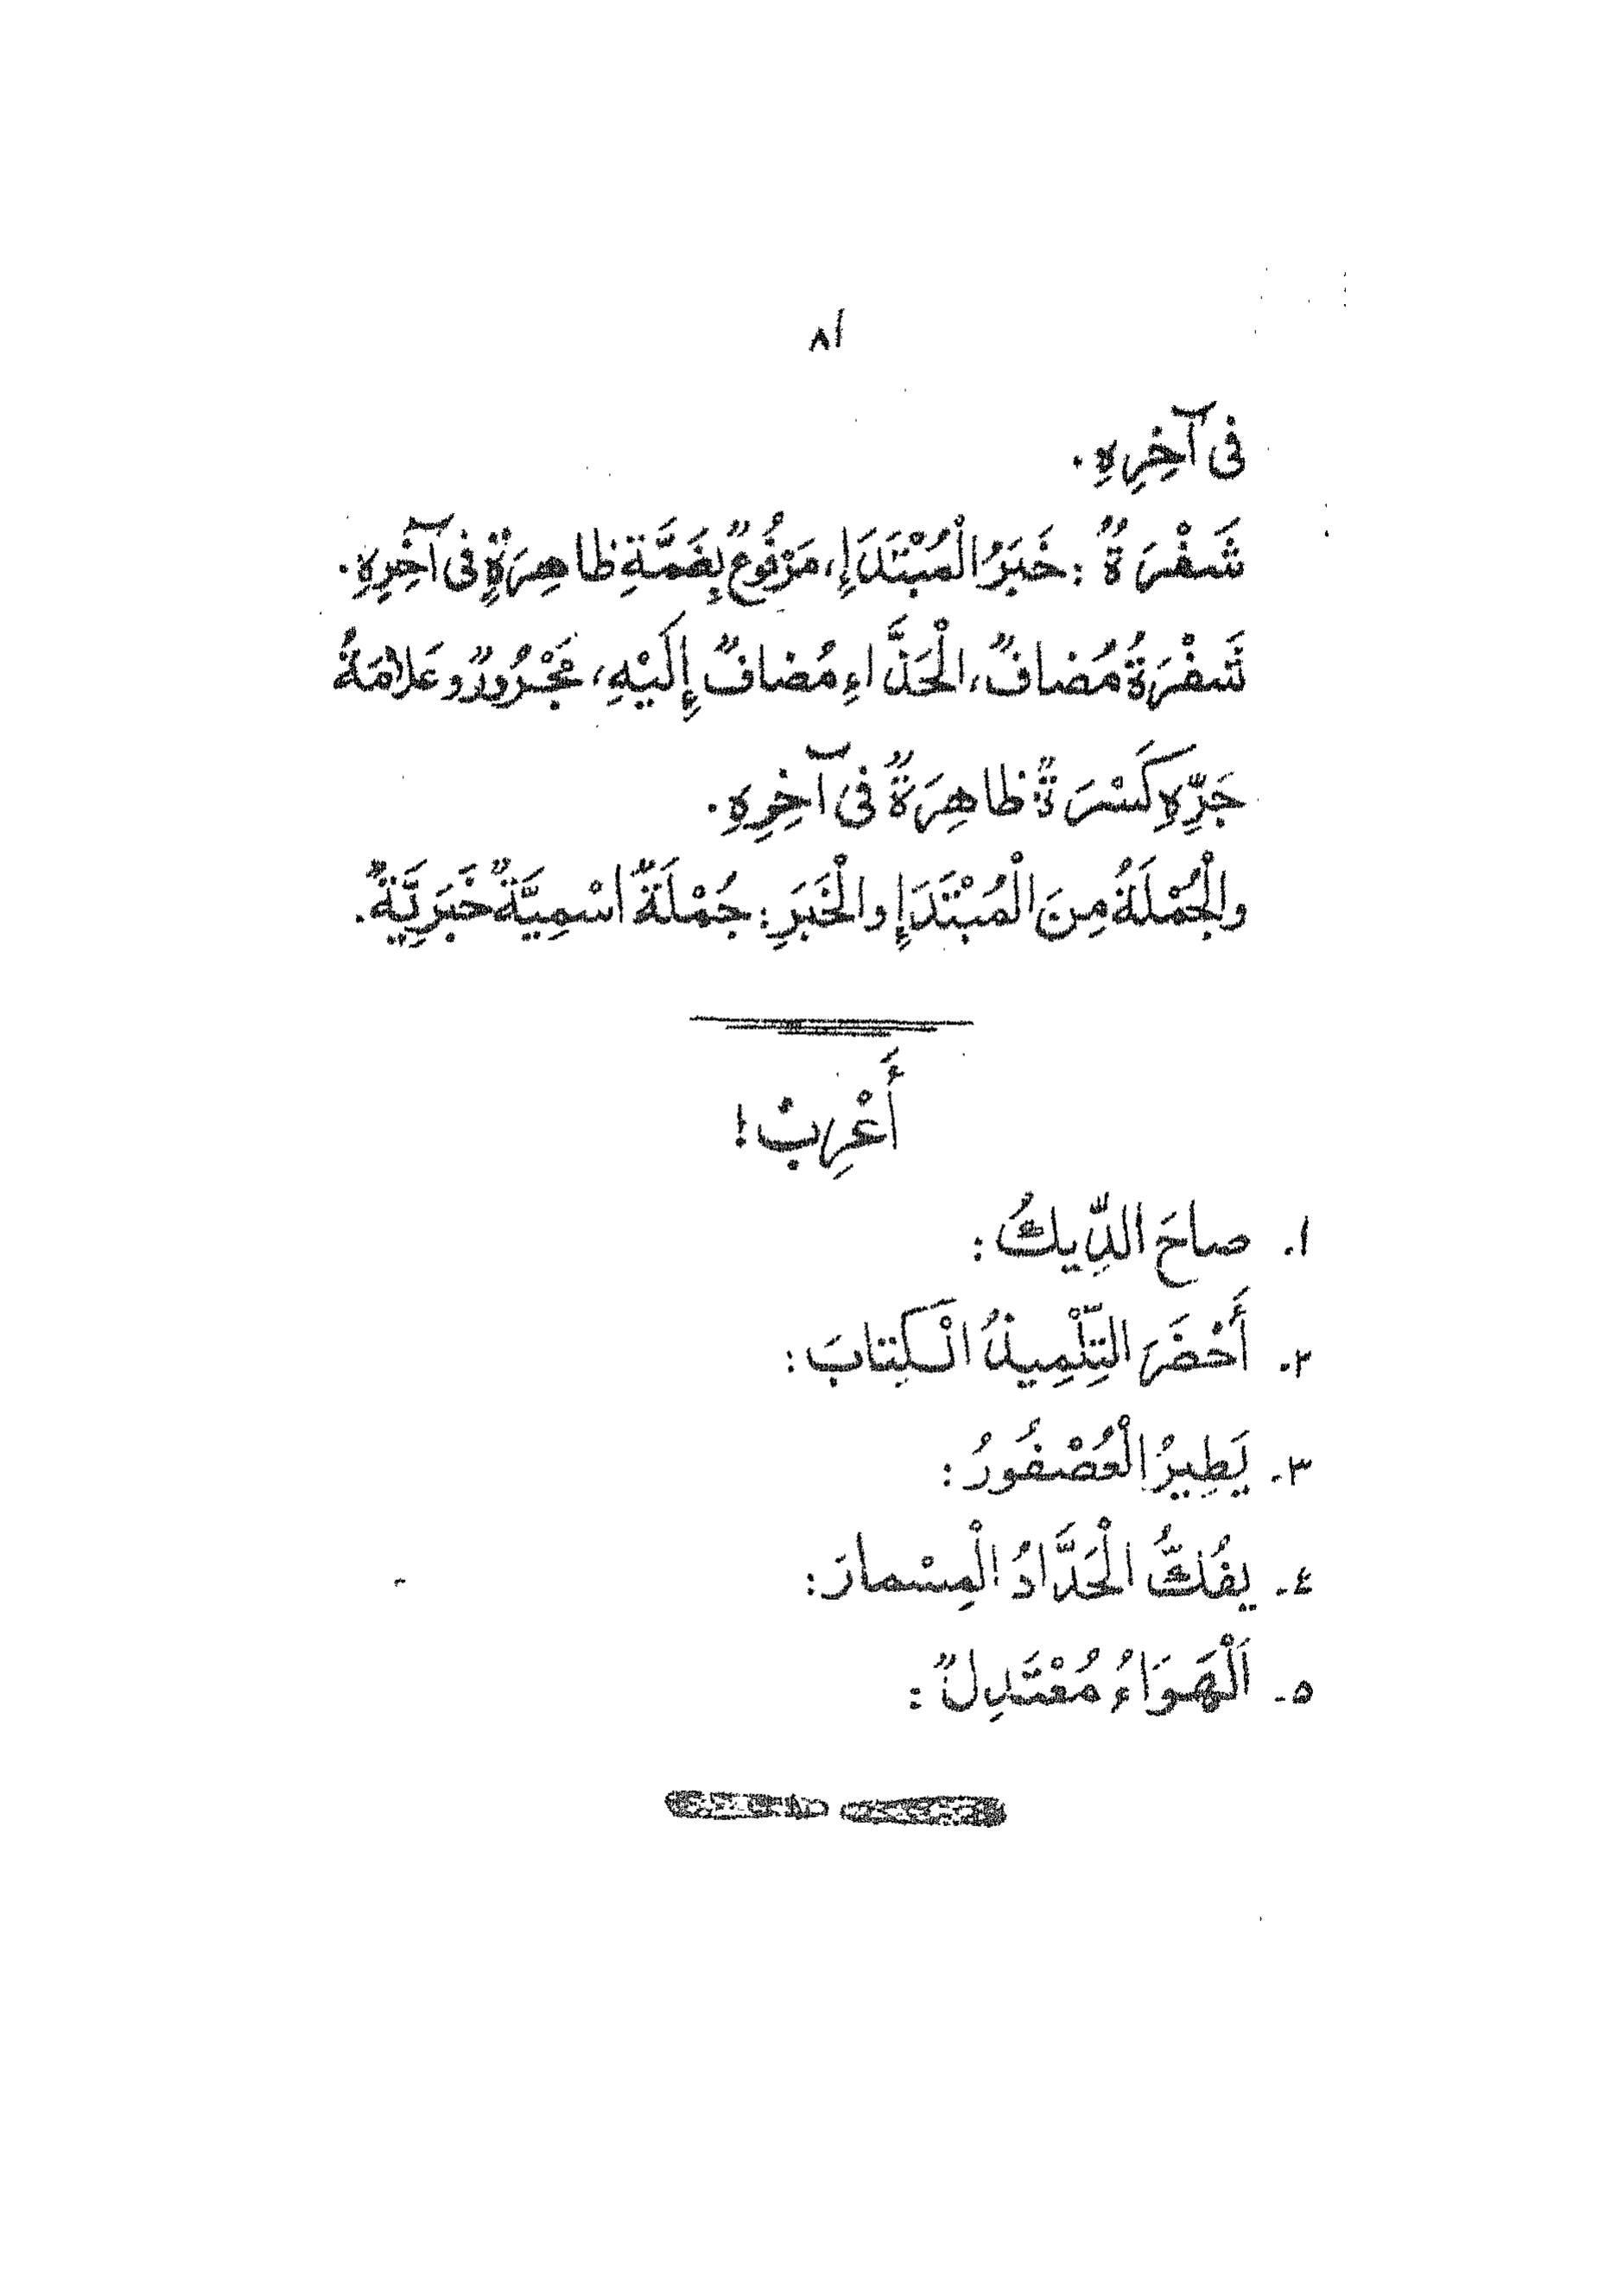 ٨١
فى آخِرِهِ.
شَفْرَةٌ : خَبَرُ الْمُبْتَدَإِ، مَرْفُوعٌ بِضَمَّةٍ ظاهِرَةٍ فى آخِرِهِ.
شَفْرَةُ مُضافٌ، الْحَذَّاءِ مُضافٌ إِلَيْهِ، مَجْرُورٌ وعَلامَةُ
جَرِّهِ كَسْرَةٌ ظاهِرَةٌ فى آخِرِهِ.
والْجُمْلَةُ مِنَ الْمُبْتَدَإِ والْخَبَرِ: جُمْلَةٌ اسْمِيَّةٌ خَبَرِيَّةٌ.
أَعْرِبْ!
١. صاحَ الدِّيكُ:
٢. أَحْضَرَ التِّلْمِيذُ الْكِتابَ:
٣. يَطِيرُ الْعُصْفُورُ:
٤. يفُكُّ الْحَدَّادُ الْمِسْمارَ:
٥. اَلْهَوَاءُ مُعْتَدِلٌ: